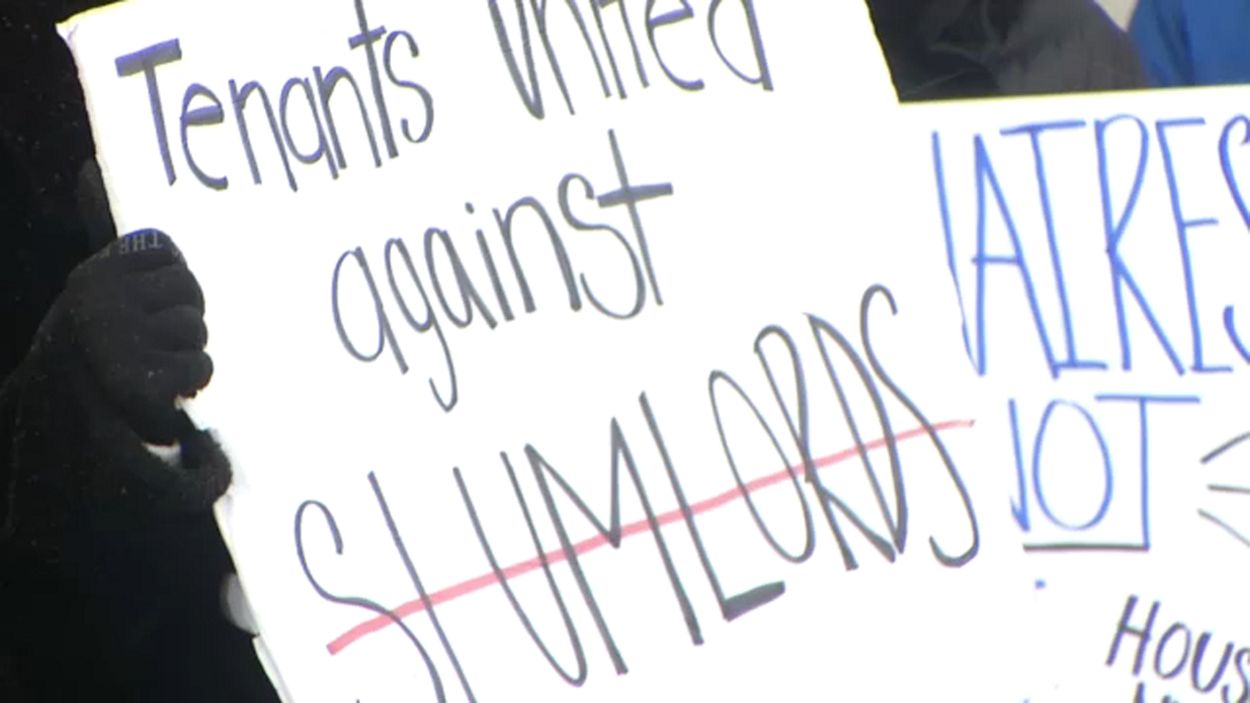 Tenants United
against
SLUMLORDS
AIRES
NOT
HOUS
THE